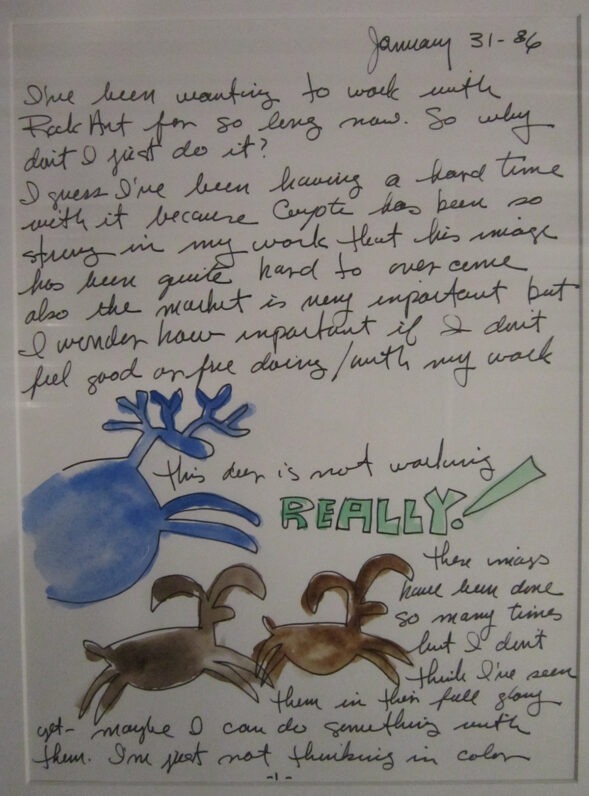 January 31-86
I've been wanting to work with
Rock Art for so long now. So why
don't I just do it?
I guess I've been having a hard time
with it because Coyote has been so
strong in my work that his image
has been quite hard to over come
also the market is very important but
I wonder how important if I don't
feel good or free doing/with my work
this deer is not walking
REALLY!
these images
have been done
so many times
but I don't
think I've seen
them in their full glory
yet- maybe I can do something with
them. I'm just not thinking in color
-1-